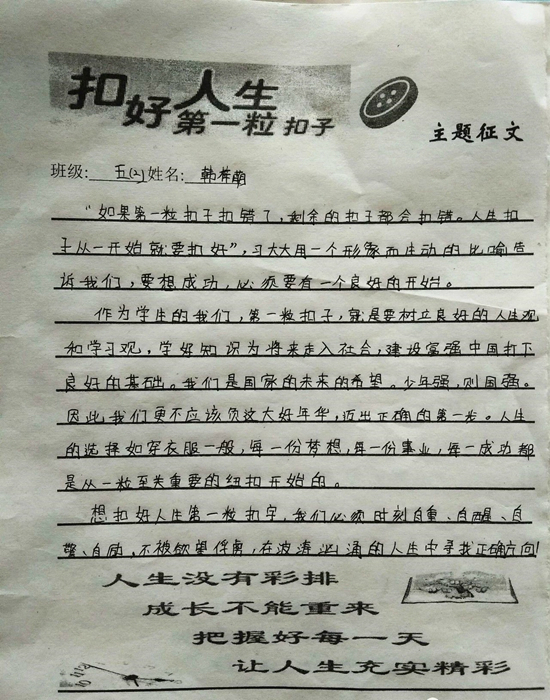 扣好人生
第一粒扣子
主题征文
班级: 五(2) 姓名: 韩梓萌
“如果第一粒扣子扣错了,剩余的扣子都会扣错。人生扣
子从一开始就要扣好”,习大大用一个形象而生动的比喻告
诉我们,要想成功,必须要有一个良好的开始。
作为学生的我们,第一粒扣子,就是要树立良好的人生观
和学习观,学好知识为将来走入社会,建设富强中国打下
良好的基础。我们是国家的未来的希望。少年强,则国强。
因此我们更不应该负这大好年华,迈出正确的第一步。人生
的选择如穿衣服一般,每一份梦想,每一份事业,每一成功都
是从一粒至关重要的纽扣开始的。
想扣好人生第一粒扣字,我们必须时刻自重、自醒、自
警、自励,不被欲望俘虏,在波涛汹涌的人生中寻找正确方向!
人生没有彩排
成长不能重来
把握好每一天
让人生充实精彩